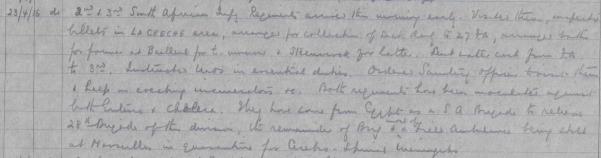 23/4/16 do 2nd & 3rd South African Infy Regiments arrive this morning early. Visited them, inspected
billets in LA CRECHE area, arranges for collection of sick Aug to 27 FA, arranges baths
for former at Bailleul for to morrow & Steenwerck for latter. Sent water cart from FA
to 3rd. Instructed M.O's in essential duties. Ordered Sanitary Officer to visit them
& help in erecting incinerators &c. Both regiments have been inoculated against
both Enteric & Cholera. They have come from Egypt as a S A Brigade to relieve
28th Brigade of this division, the remainder of Brig. & a Field Ambulance being still
at Marseilles in quarantine for Cerebro-Spinal Meningitis